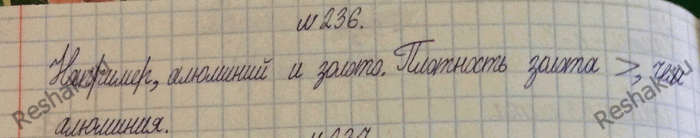 №236.
Например, алюминий и золото. Плотность золота >, чем
алюминия.
Reshak.ru
Reshak.ru